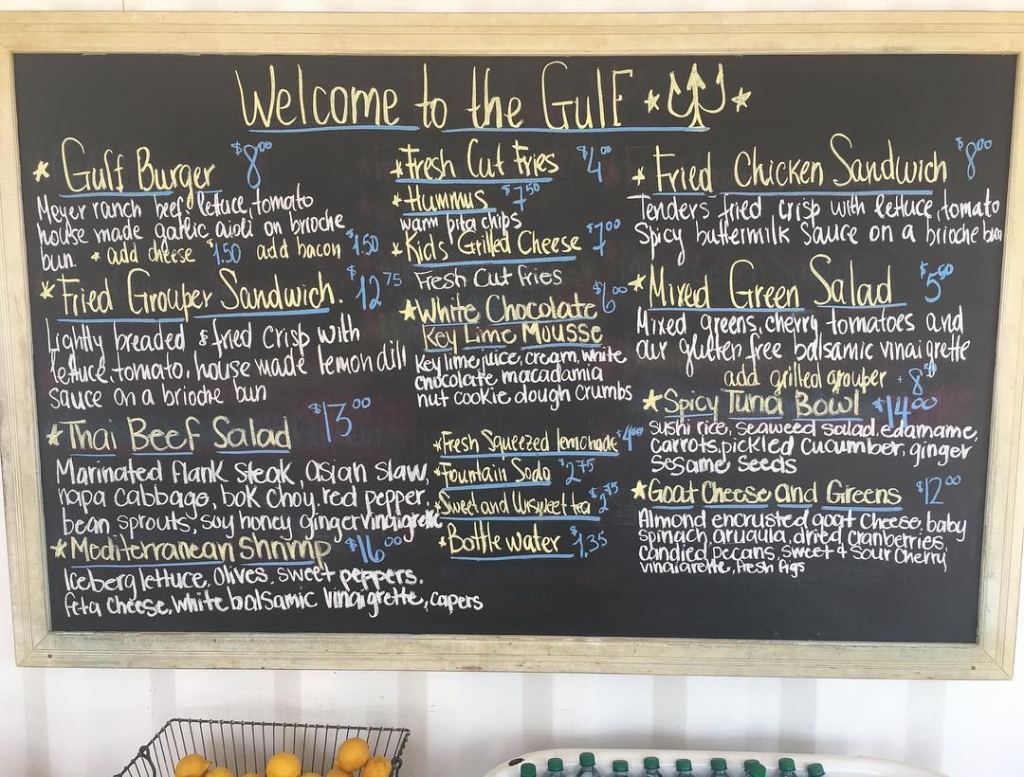 Welcome to the Gulf
Gulf Burger $8.00
Meyer ranch beef, lettuce, tomato
house made garlic aioli on brioche
bun. * add cheese $1.50 add bacon $1.50
Fried Grouper Sandwich. $12.75
Lightly breaded & fried crisp with
lettuce, tomato, house made lemon dill
sauce on a brioche bun
Thai Beef Salad $13.00
Marinated flank steak, asian slaw,
napa cabbage, bok choy, red pepper,
bean sprouts, soy honey ginger vinaigrette
Mediterranean Shrimp $16.00
Iceberg lettuce, olives, sweet peppers,
feta cheese, white balsamic vinaigrette, capers
Fresh Cut Fries $4.00
Hummus $7.50
warm pita chips
Kids' Grilled Cheese $7.00
Fresh Cut Fries
White Chocolate $6.00
Key Lime Mousse
Key lime juice, cream, white
chocolate macadamia
nut cookie dough crumbs
Fresh Squeezed lemonade $4.00
Fountain Soda $2.75
Sweet and Unsweet tea $2.75
Bottle water $1.35
Fried Chicken Sandwich $8.00
Tenders fried crisp with lettuce, tomato
Spicy buttermilk sauce on a brioche bun
Mixed Green Salad $5.50
Mixed greens, cherry tomatoes and
our gluten free balsamic vinaigrette
add grilled grouper + 8.50
Spicy Tuna Bowl $14.00
sushi rice, seaweed salad, edamame,
carrots, pickled cucumber, ginger
sesame seeds
Goat Cheese and Greens $12.00
Almond encrusted goat cheese, baby
spinach, arugula, dried cranberries
candied pecans, sweet & sour cherry
vinaigrette, fresh figs